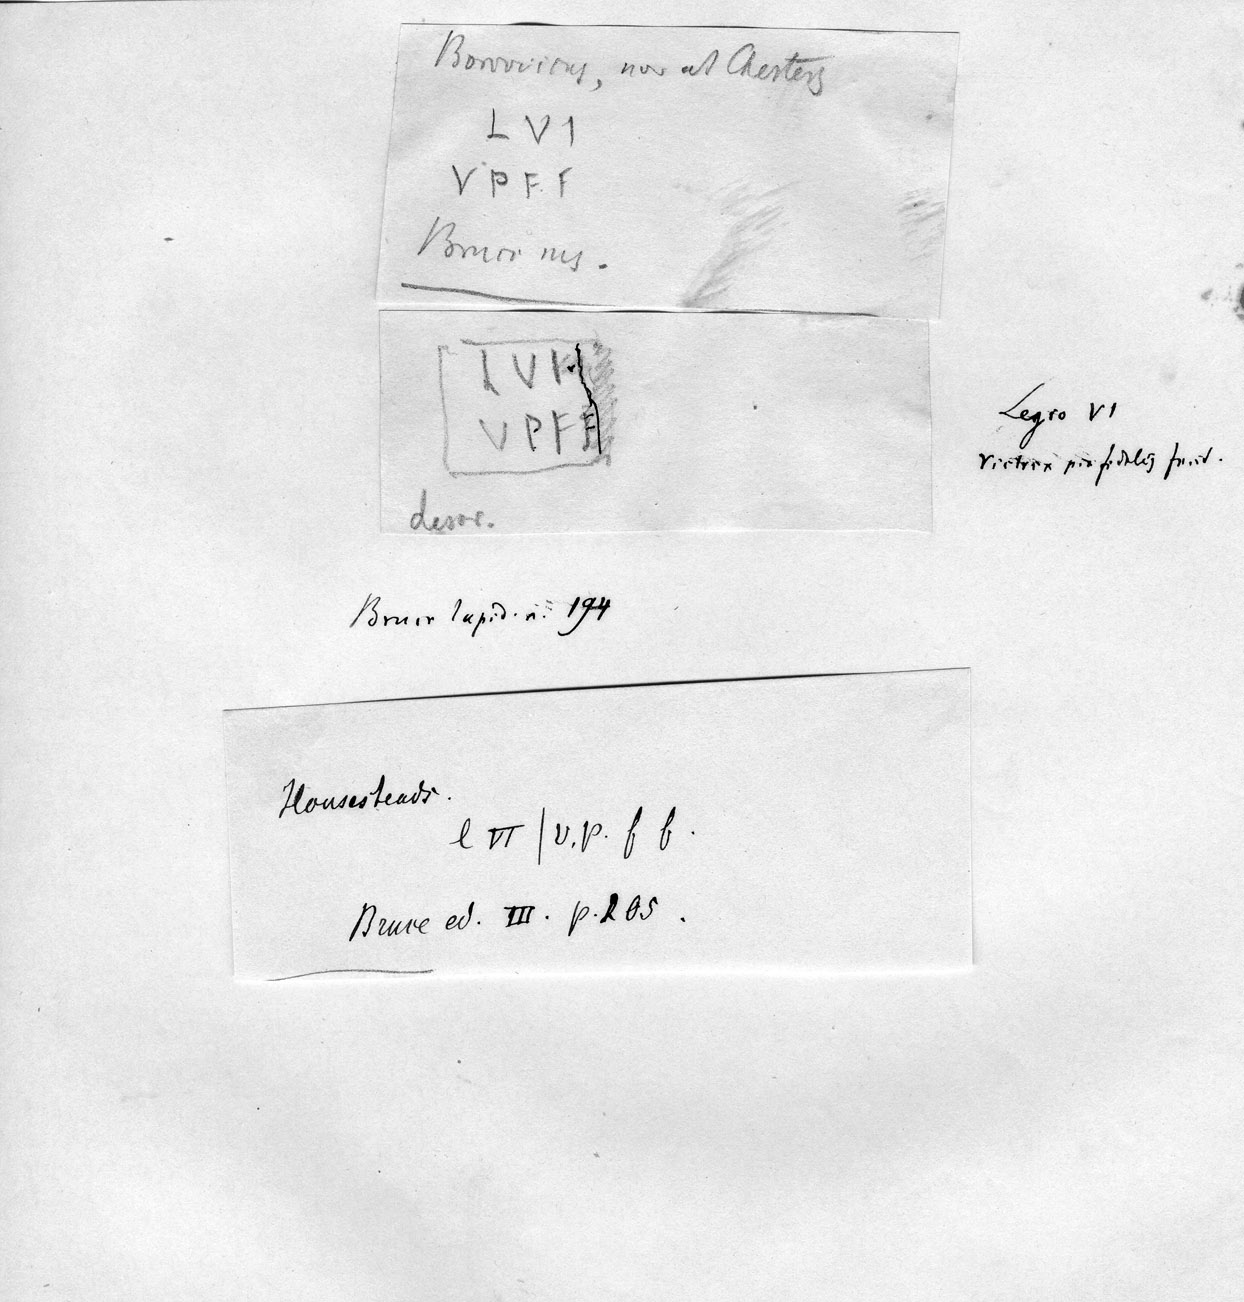 Borovicus, now at Chesters
L V I
V P F F
Bruce ms.
L V I
V P F F
descr.
Legio VI
victrix pia fidelis fecit.
Bruce lapid. n. 194
Housesteads.
l VI | v. p. f f.
Bruce ed. III. p. 205.